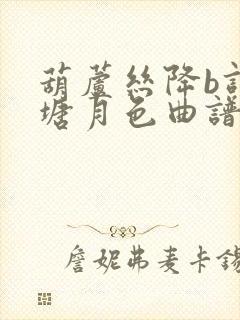 葫蘆絲降b
塘月色曲譜
詹妮弗麦卡